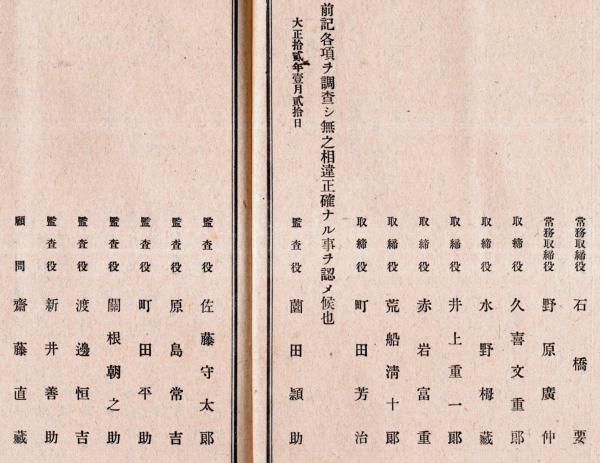 常務取締役 石橋要
常務取締役 野原廣仲
取締役 久喜文重郎
取締役 水野栂藏
取締役 井上重一郎
取締役 赤岩富重
取締役 荒船淸十郎
取締役 町田芳治
前記各項ヲ調査シ無之相違正確ナル事ヲ認メ候也
大正拾貳年壹月貳拾日
監査役 薗田顯助
監査役 佐藤守太郎
監査役 原島常吉
監査役 町田平助
監査役 關根朝之助
監査役 渡邊恒吉
監査役 新井善助
顧問 齋藤直藏